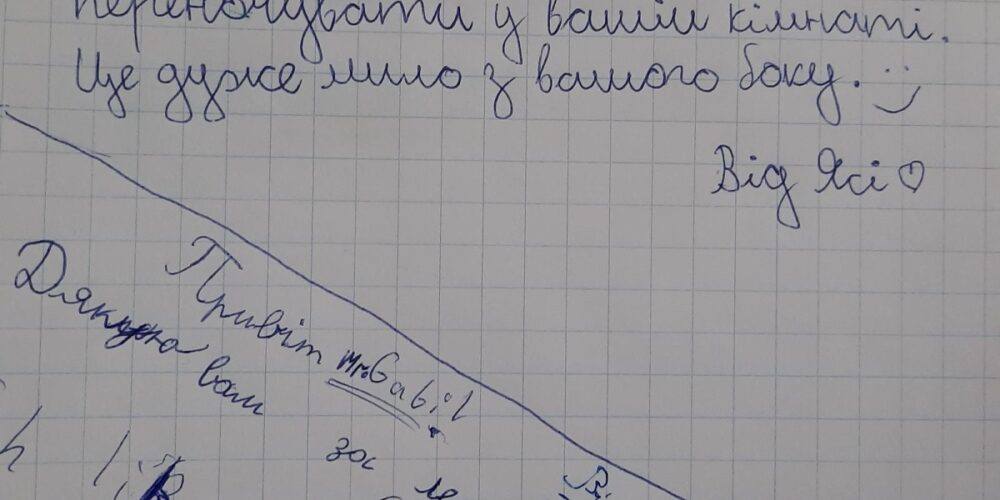 переночувати у вашій кімнаті.
Це дуже мило з вашого боку. :)
Від Ясі ♡
Привіт Mr. Gabi!
Дякую вам
за